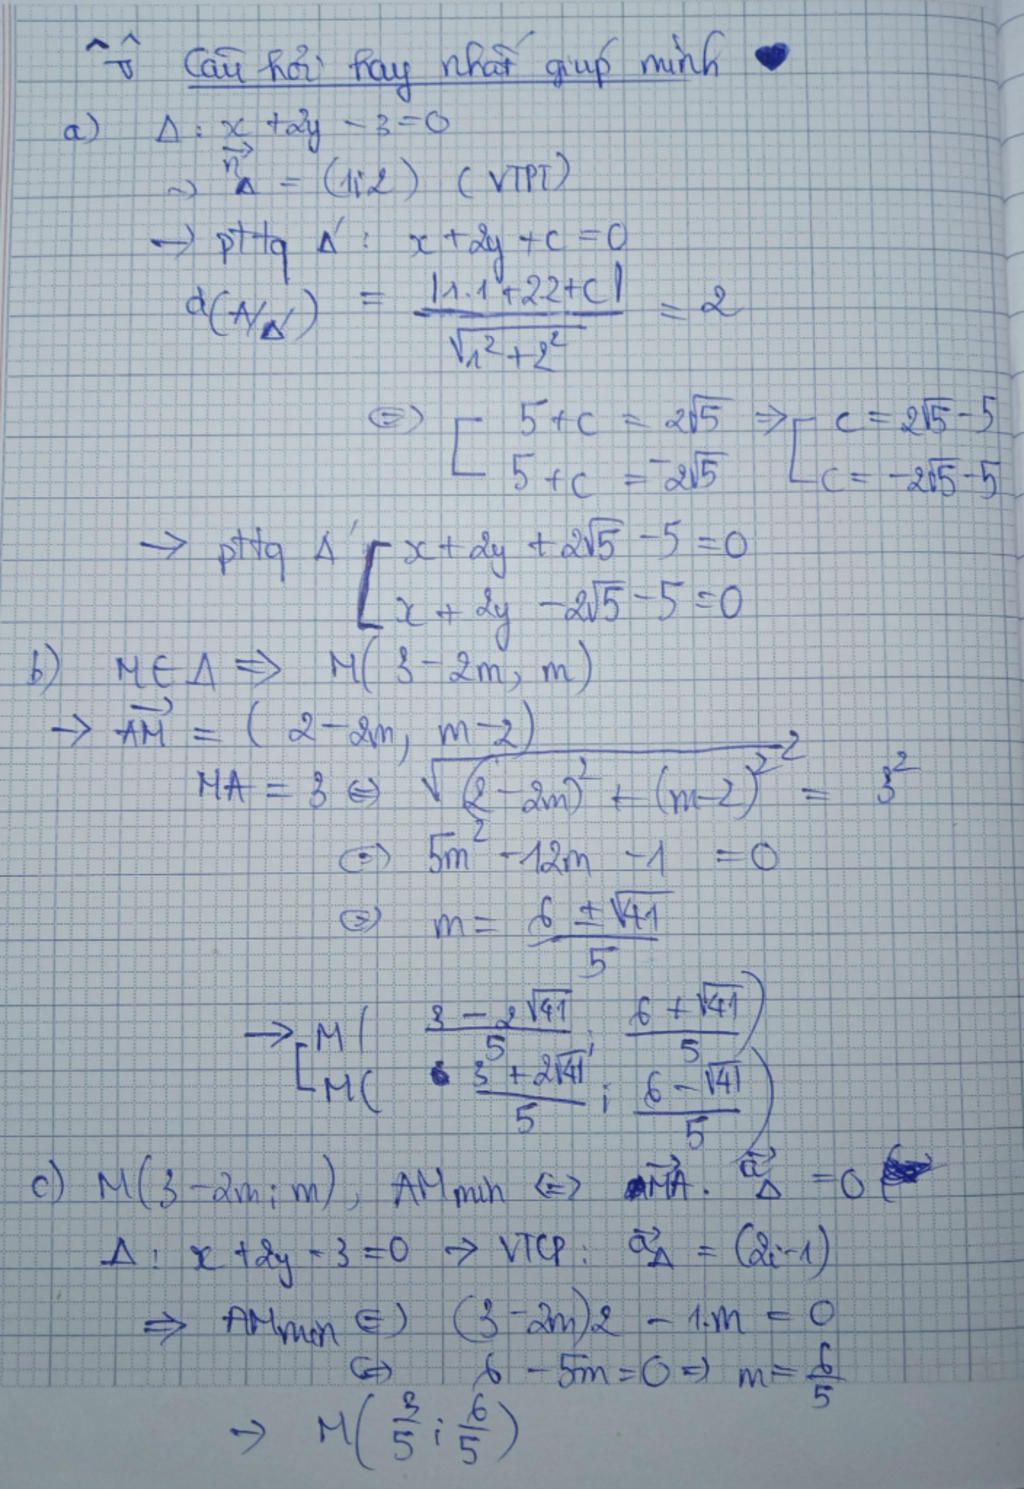 Câu hỏi hay nhất giúp mình
a) Δ: x + 2y - 3 = 0
→ n⃗Δ = (1; 2) (VTPT)
→ pttq Δ': x + 2y + c = 0
d(A/Δ') = |1.1 + 2.2 + c| / √1² + 2² = 2
⇔ [ 5 + c = 2√5 ⇒ [ c = 2√5 - 5
5 + c = -2√5 c = -2√5 - 5
→ pttq Δ' [ x + 2y + 2√5 - 5 = 0
x + 2y - 2√5 - 5 = 0
b) M ∈ Δ ⇒ M(3 - 2m; m)
→ AM⃗ = (2 - 2m, m - 2)
MA = 3 ⇔ √(2 - 2m)² + (m - 2)²² = 3²
⇔ 5m² - 12m - 1 = 0
⇔ m = 6 ± √41 / 5
→ [ M( 3 - 2√41 / 5 ; 6 + √41 / 5 )
M( 3 + 2√41 / 5 ; 6 - √41 / 5 )
c) M(3 - 2m; m), AMmin ⇔ MA⃗ . a⃗Δ = 0
Δ: x + 2y - 3 = 0 → VTCP: a⃗Δ = (2; -1)
⇒ AMmin ⇔ (3 - 2m)2 - 1.m = 0
⇔ 6 - 5m = 0 ⇒ m = 6/5
→ M(3/5; 6/5)